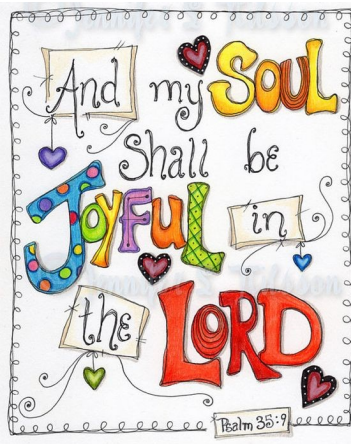 And my SOUL
Shall be
JoyfuL in
the LORD
Psalm 35:9